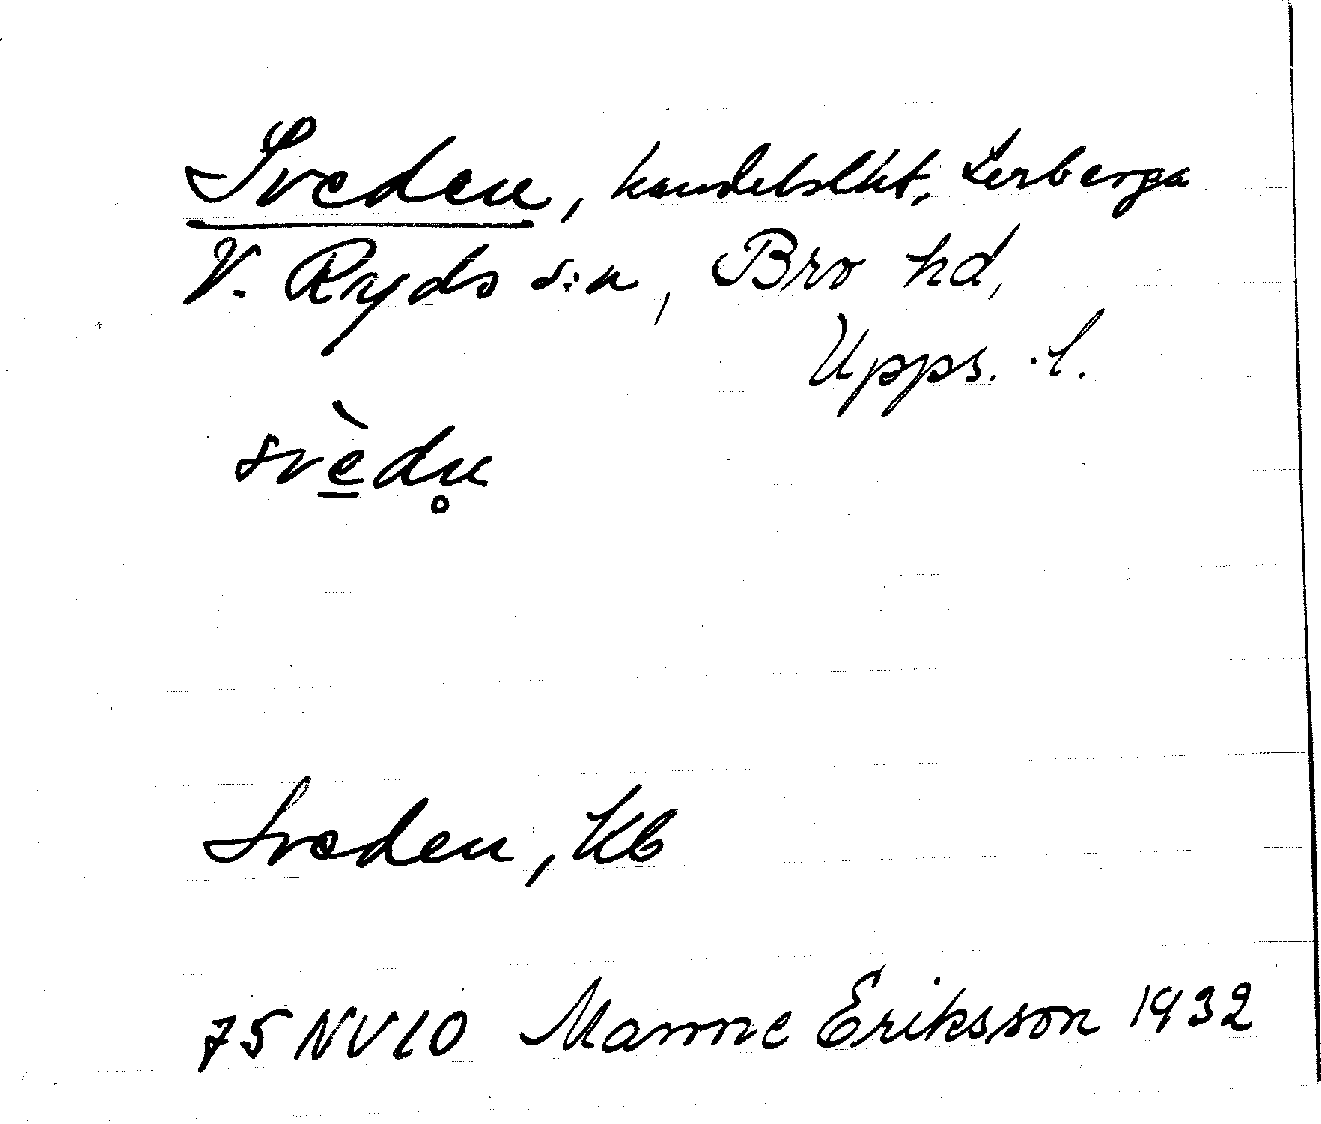 Sveden, handelslht, Lerberga
V. Ryds s:n, Bro hd,
Upps. l.
svèdn̥
Sveden, Kb
75 NV10 Manne Eriksson 1932